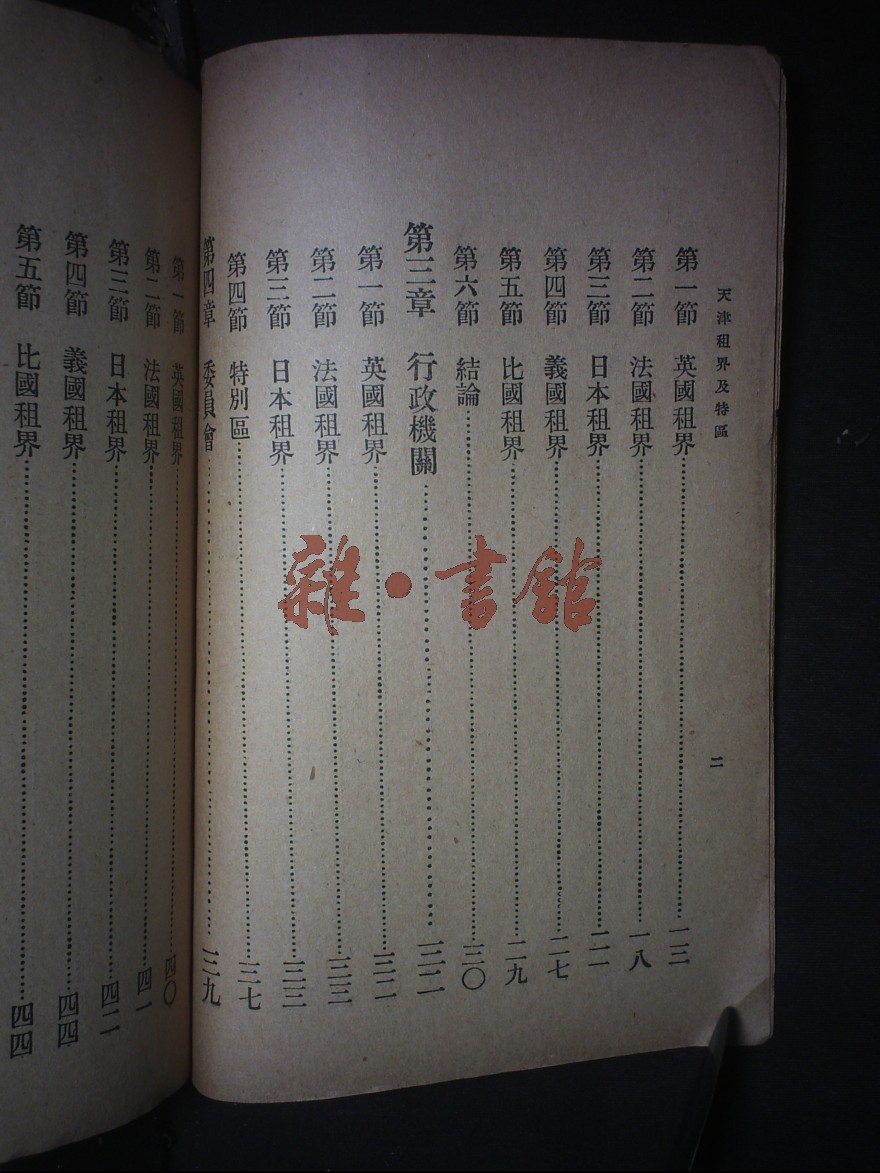 天津租界及特區
二
第一節 英國租界……一三
第二節 法國租界……一八
第三節 日本租界……二一
第四節 義國租界……二七
第五節 比國租界……二九
第六節 結論……三〇
第三章 行政機關……三二
第一節 英國租界……三二
第二節 法國租界……三三
第三節 日本租界……三三
第四節 特別區……三七
第四章 委員會……三九
第一節 英國租界……四〇
第二節 法國租界……四一
第三節 日本租界……四二
第四節 義國租界……四四
第五節 比國租界……四四
雜·書館